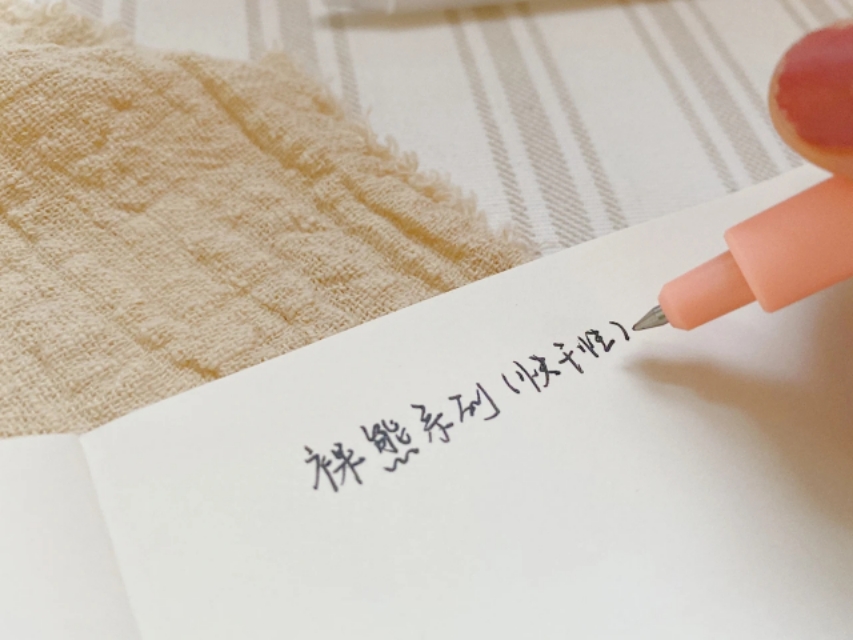 裸熊系列(快干性)